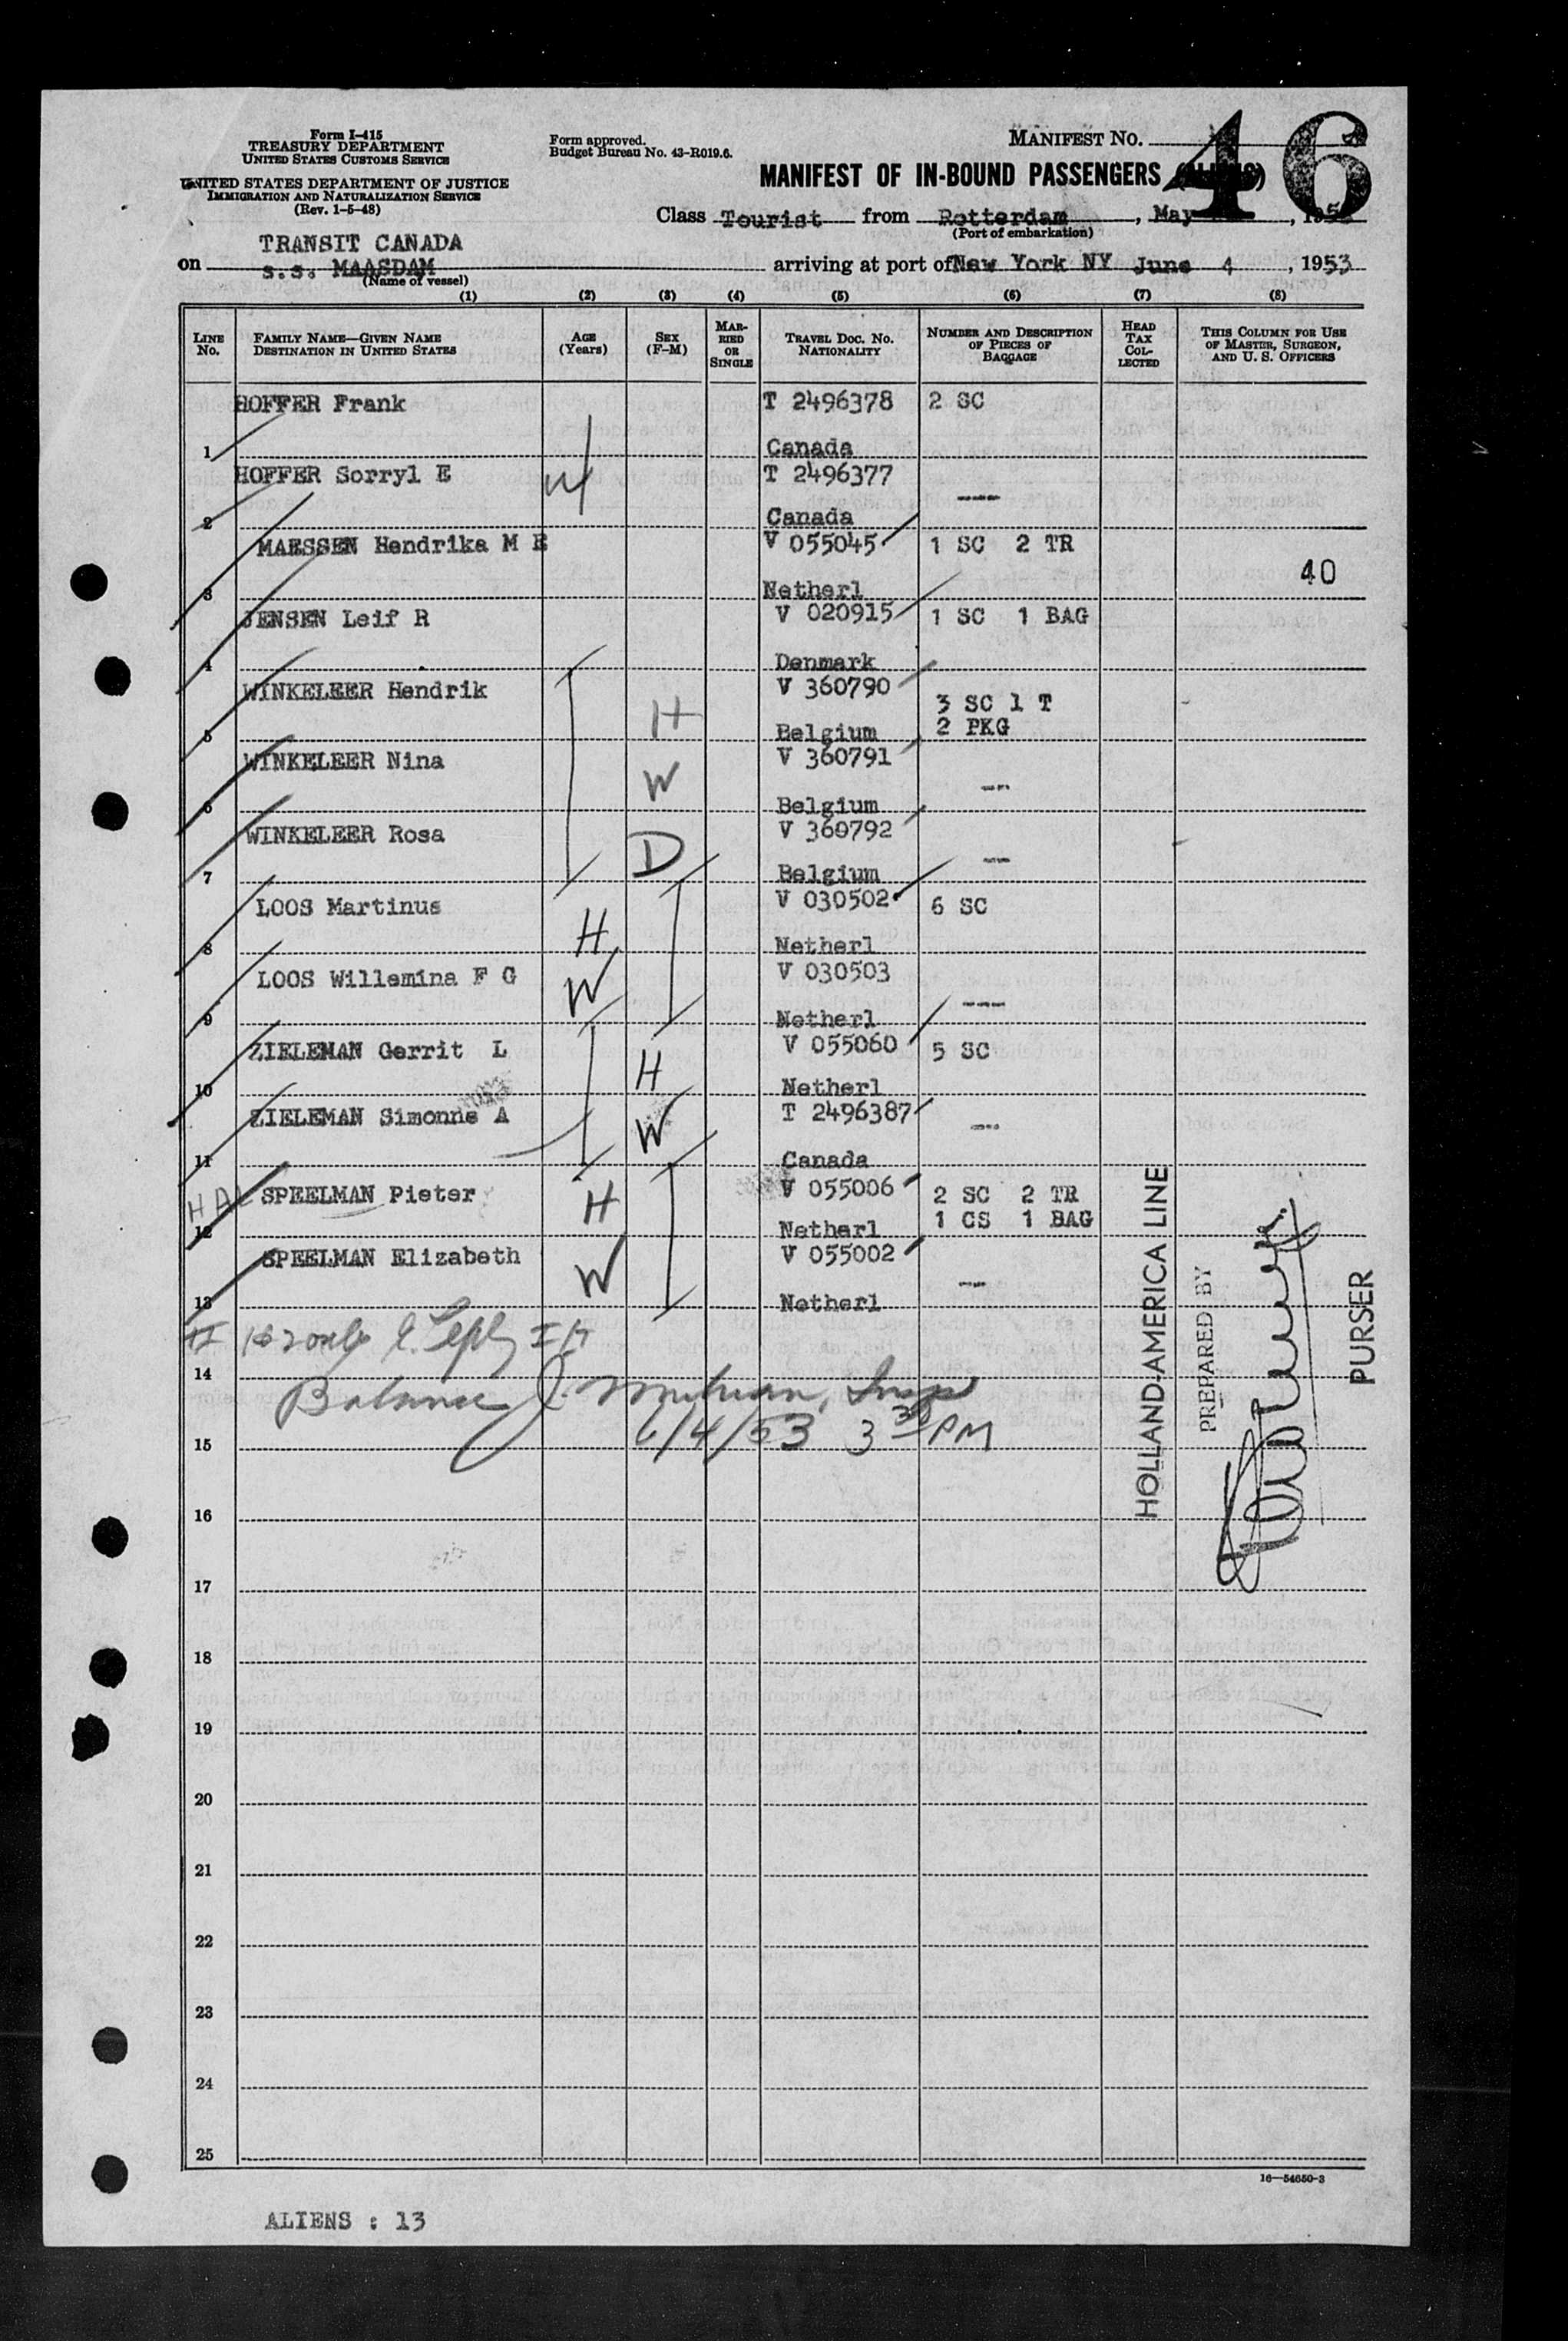 Form I-415
TREASURY DEPARTMENT
UNITED STATES CUSTOMS SERVICE
UNITED STATES DEPARTMENT OF JUSTICE
IMMIGRATION AND NATURALIZATION SERVICE
(Rev. 1-5-48)
Form approved.
Budget Bureau No. 43-R019.6.
MANIFEST NO. 46
MANIFEST OF IN-BOUND PASSENGERS (ALIENS)
Class Tourist from Rotterdam, May, 195
(Port of embarkation)
TRANSIT CANADA
on s.s. MAASDAM arriving at port of New York NY June 4, 1953
(Name of vessel)
(1) (2) (3) (4) (5) (6) (7) (8)
LINE No. FAMILY NAME—GIVEN NAME DESTINATION IN UNITED STATES AGE (Years) SEX (F-M) MARRIED OR SINGLE TRAVEL DOC. NO. NATIONALITY NUMBER AND DESCRIPTION OF PIECES OF BAGGAGE HEAD TAX COLLECTED THIS COLUMN FOR USE OF MASTER, SURGEON, AND U. S. OFFICERS
HOFFER Frank T 2496378 2 SC
1 Canada
HOFFER Sorryl E W T 2496377 ---
2 Canada
MAESSEN Hendrika M E V 055045 1 SC 2 TR
40
3 Netherl
JENSEN Leif R V 020915 1 SC 1 BAG
4 Denmark
WINKELEER Hendrik V 360790 3 SC 1 T
5 H Belgium 2 PKG
WINKELEER Nina W V 360791 --
6 Belgium
WINKELEER Rosa D V 360792 --
7 Belgium
LOOS Martinus H V 030502 6 SC
8 Netherl
LOOS Willemina F G W V 030503 ---
9 Netherl
ZIELEMAN Gerrit L H V 055060 5 SC
10 Netherl
ZIELEMAN Simonne A W T 2496387 --
11 Canada
HAL SPEELMAN Pieter H V 055006 2 SC 2 TR
12 Netherl 1 CS 1 BAG
SPEELMAN Elizabeth W V 055002 --
13 Netherl
14
Balance J.
6/4/53 3 30 PM
15
16
17
18
19
20
21
22
23
24
25
HOLLAND-AMERICA LINE
PREPARED BY
PURSER
16—54650-3
ALIENS : 13